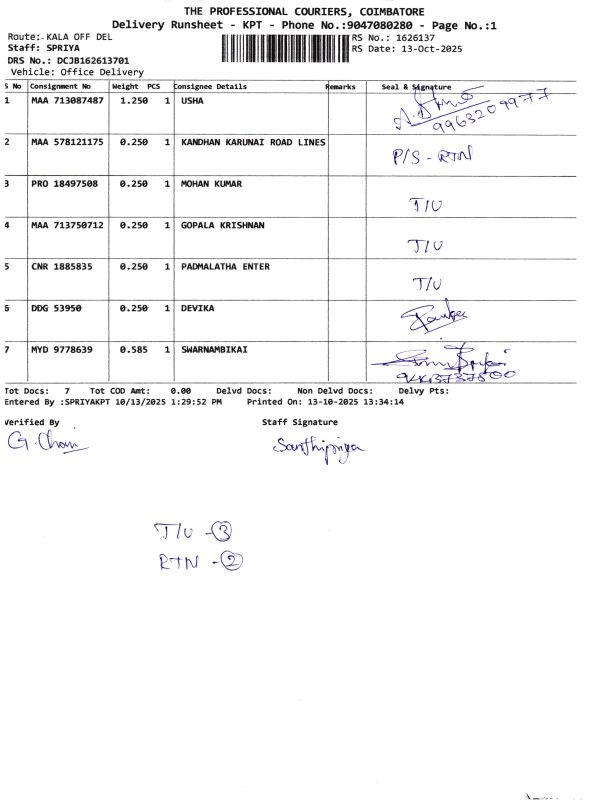 THE PROFESSIONAL COURIERS, COIMBATORE
Delivery Runsheet - KPT - Phone No.:9047080280 - Page No.:1
Route: KALA OFF DEL
RS No.: 1626137
Staff: SPRIYA
RS Date: 13-Oct-2025
DRS No.: DCJB162613701
Vehicle: Office Delivery
S No Consignment No Weight PCS Consignee Details Remarks Seal & Signature
1 MAA 713087487 1.250 1 USHA
9963209977
2 MAA 578121175 0.250 1 KANDHAN KARUNAI ROAD LINES P/S - RTN
3 PRO 18497508 0.250 1 MOHAN KUMAR T/U
4 MAA 713750712 0.250 1 GOPALA KRISHNAN T/U
5 CNR 1885835 0.250 1 PADMALATHA ENTER T/U
6 DDG 53950 0.250 1 DEVIKA
7 MYD 9778639 0.585 1 SWARNAMBIKAI
Tot Docs: 7 Tot COD Amt: 0.00 Delvd Docs: Non Delvd Docs: Delvy Pts:
Entered By :SPRIYAKPT 10/13/2025 1:29:52 PM Printed On: 13-10-2025 13:34:14
Verified By Staff Signature
Santhipriya
T/U - 3
RTN - 2